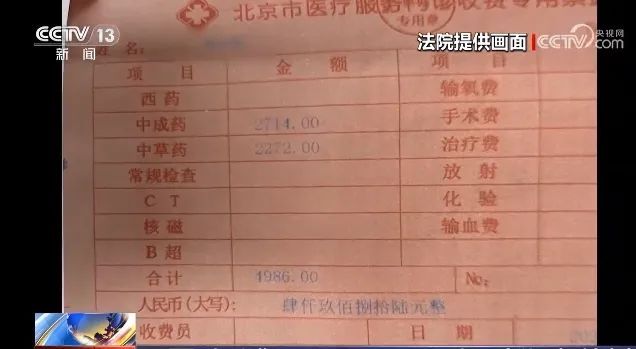 CCTV 13
新闻
北京市医疗服务
收费专用票据
专用章
法院提供画面
CCTV 央视网
.com
姓名:
项目 金额 项目
西药 输氧费
中成药 2714.00 手术费
中草药 2272.00 治疗费
常规检查 放射
CT 化验
核磁 输血费
B超
合计 4986.00 No:
人民币(大写): 肆仟玖佰捌拾陆元整
收费员 日期